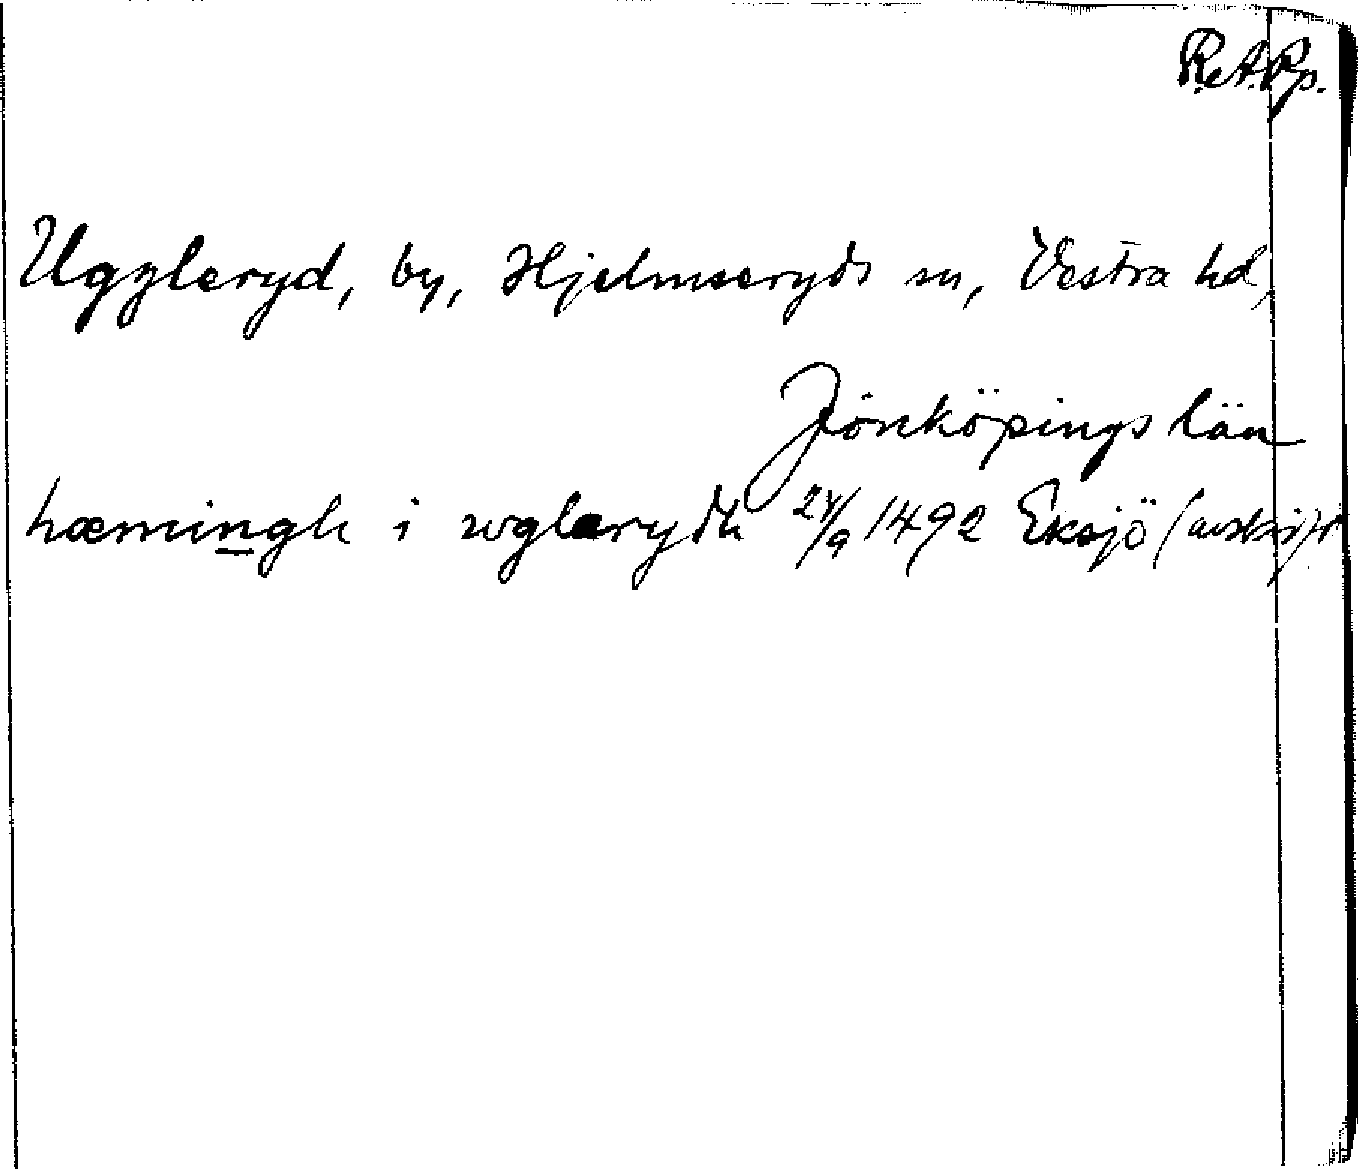 R.A.Pp.
Uggleryd, by, Hjelmseryds sn, Vestra hd,
Jönköpings län
hæmingh i wglerydh 24/9 1492 Eksjö (avskrift